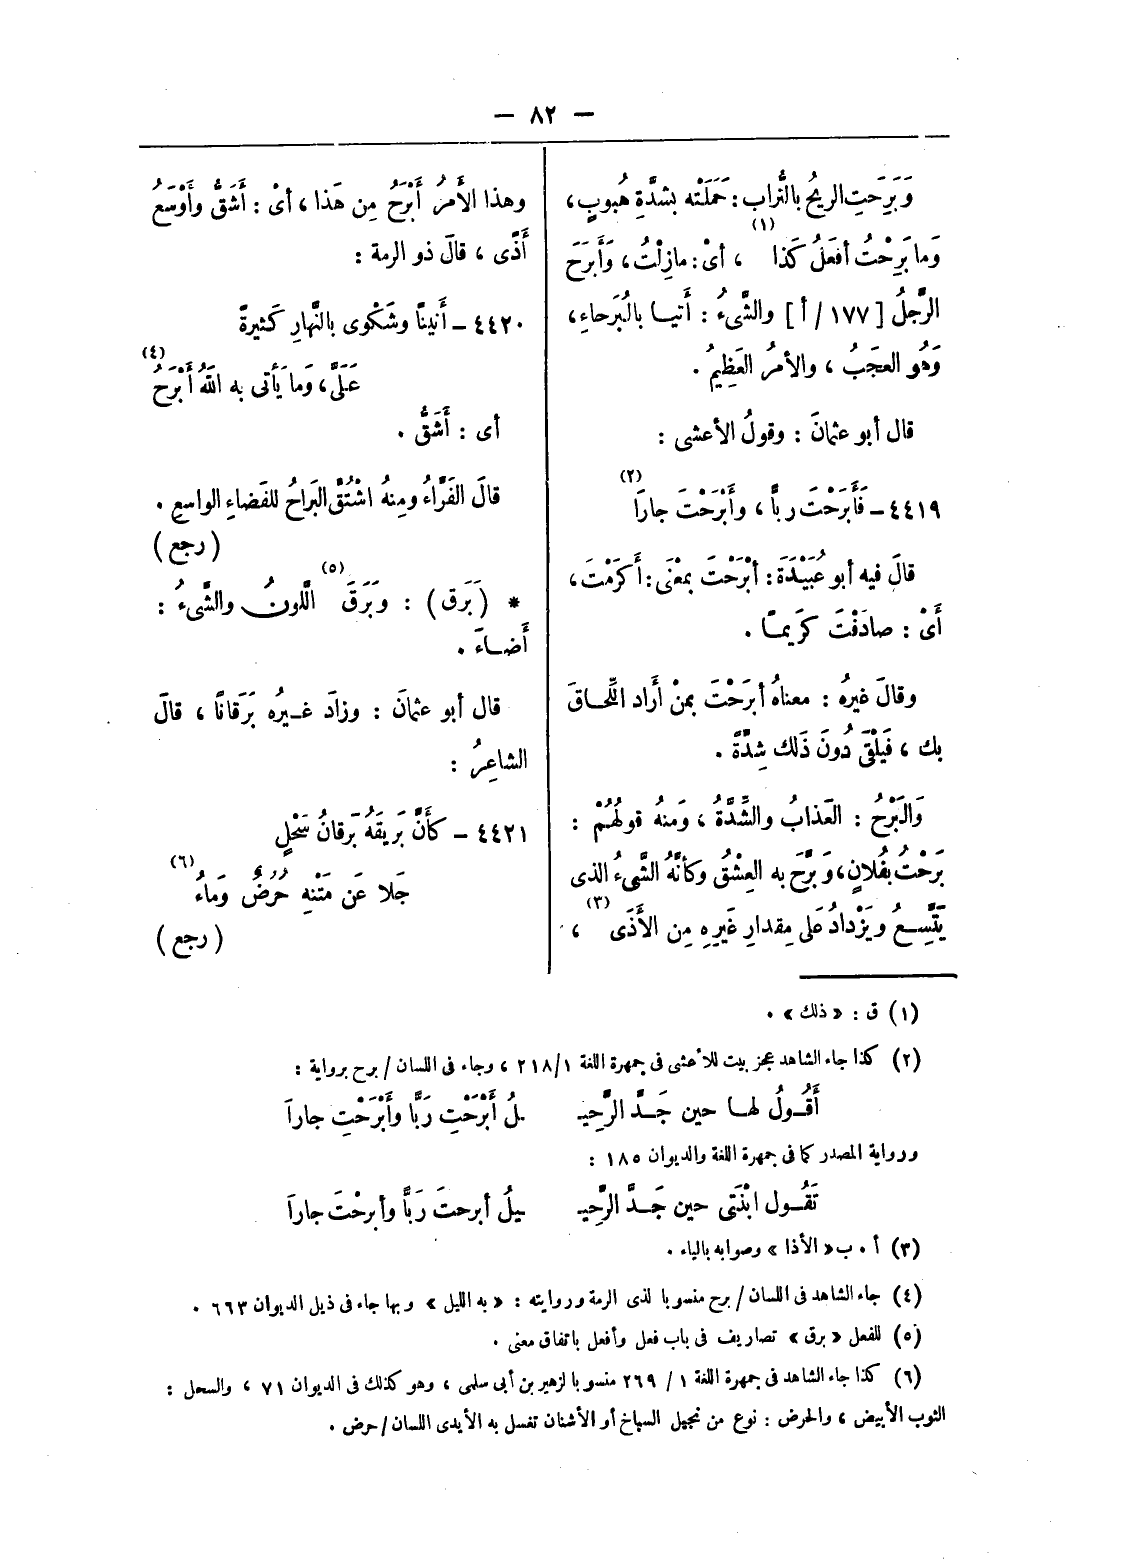 — ٨٢ —
وَبَرِحَتِ الريحُ بالتُّراب : حَمَلَتْه بشدَّةِ هُبوبٍ ،
وَما بَرِحْتُ أفعَلُ كَذا (١) ، أىْ : مازِلْتُ ، وَأَبرَحَ
الرَّجلُ [ ١٧٧ / أ ] والشَّىءُ : أَتيا بالبُرَحاءِ ،
وَهُو العجَبُ ، والأمرُ العَظِيمُ .
قال أبو عثمانَ : وقولُ الأعشى :
٤٤١٩ – فَأَبرَحْتَ ربًّا ، وأَبْرَحْتَ جارَا (٢)
قالَ فيه أبو عُبَيْدَةَ : أبْرَحْتَ بمعْنَى : أَكرَمْتَ ،
أَىْ : صادَفْتَ كرَيمًا .
وقالَ غيرُه : معناهُ أبرَحْتَ بمنْ أَراد اللِّحاقَ
بك ، فَيلْقَى دُونَ ذَلك شِدَّةً .
وَالبَرْحُ : العَذابُ والشِّدَّةُ ، وَمنهُ قولُهُمْ :
بَرحْتُ بفُلانٍ ، وَبرَّحَ به العِشْقُ وكأنَّهُ الشَّىءُ الذى
يَتَّسِعُ ويَزْدادُ عَلَى مِقدارِ غَيرِهِ مِن الأَذَى (٣) ،
وهذا الأَمرُ أَبْرَحُ مِن هَذا ، أىْ : أَشَقُّ وأَوْسَعُ
أَذًى ، قالَ ذو الرمة :
٤٤٢٠ – أَنينًا وشَكْوى بالنَّهارِ كَثيرةً
عَلَىَّ ، وَما يَأتى به اللهُ أبْرَحُ (٤)
أى : أَشَقُّ .
قالَ الفَرَّاءُ ومِنهُ اشْتُقَّ البَراحُ للفَضاءِ الواسعِ .
( رجع )
* ( بَرَق ) : وبَرَقَ (٥) اللَّونُ والشَّىءُ :
أَضاءَ .
قال أبو عثمانَ : وزادَ غيرُه بَرَقانًا ، قالَ
الشاعِرُ :
٤٤٢١ – كأَنَّ بَريقَهُ بَرقانُ سَحْلٍ
جَلا عَن مَتْنِهِ حُرُضٌ وَماءُ (٦)
( رجع )
(١) ق : « ذلك » .
(٢) كذا جاء الشاهد عجز بيت للأعشى فى جمهرة اللغة ٢١٨/١ ، وجاء فى اللسان / برح برواية :
أَقُولُ لها حين جَدَّ الرَّحيـ ـلُ أَبْرَحْتِ رَبًّا وأَبْرَحْتِ جاراَ
ورواية المصدر كما فى جمهرة اللغة والديوان ١٨٥ :
تَقُول ابْنَتى حين جَدَّ الرَّحيـ ـيلُ أبرحتَ رَبًّا وأبرحْتَ جاراَ
(٣) أ . ب « الأذا » وصوابه بالياء .
(٤) جاء الشاهد فى اللسان / برح منسوبا لذى الرمة وروايته : « به الليل » وبها جاء فى ذيل الديوان ٦٦٣ .
(٥) للفعل « برق » تصاريف فى باب فعل وأفعل باتفاق معنى .
(٦) كذا جاء الشاهد فى جمهرة اللغة ١ / ٢٦٩ منسوبا لزهير بن أبى سلمى ، وهو كذلك فى الديوان ٧١ ، والسحل :
الثوب الأبيض ، والحرض : نوع من نجيل السباخ أو الأشنان تغسل به الأيدى اللسان / حرض .